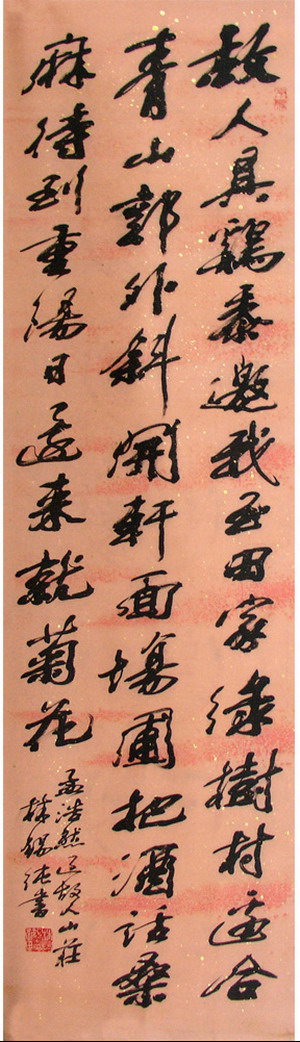 故人具鷄黍邀我至田家綠樹村邊合
青山郭外斜開軒面場圃把酒話桑
麻待到重陽日還來就菊花
孟浩然過故人山莊
林錫純書